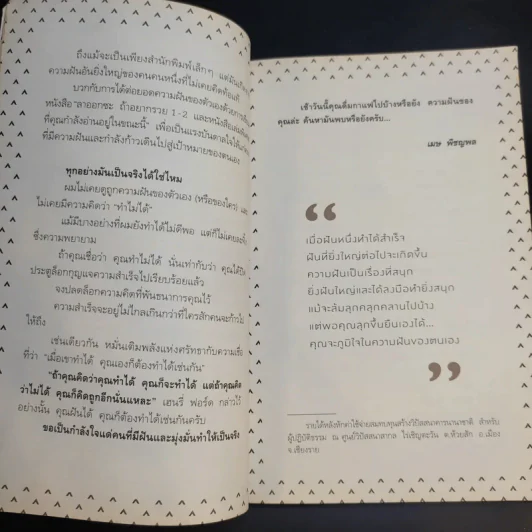 ถึงแม้จะเป็นเพียงสำนักพิมพ์เล็กๆ แต่มันคือ
ความฝันอันยิ่งใหญ่ของคนคนหนึ่งที่ไม่เคยคิดท้อแท้
บวกกับการได้ต่อยอดความฝันของตัวเองด้วยการเขียน
หนังสือ "ลาออกซะ ถ้าอยากรวย 1-2 และหนังสือเล่มที่
ที่คุณกำลังอ่านอยู่ในขณะนี้" เพื่อเป็นแรงบันดาลใจให้กับ
ที่มีความฝันและกำลังก้าวเดินไปสู่เป้าหมายของตนเอง
ทุกอย่างมันเป็นจริงได้ใช่ไหม
ผมไม่เคยดูถูกความฝันของตัวเอง (หรือของใคร) และ
ไม่เคยมีความคิดว่า "ทำไม่ได้"
แม้มีบางอย่างที่ผมยังทำได้ไม่ดีพอ แต่ก็ไม่เคยละทิ้ง
ซึ่งความพยายาม
ถ้าคุณเชื่อว่า คุณทำไม่ได้ นั่นเท่ากับว่า คุณได้ปิด
ประตูล็อกกุญแจความสำเร็จไปเรียบร้อยแล้ว
จงปลดล็อกความคิดที่พันธนาการคุณไว้
ความสำเร็จจะอยู่ไม่ไกลเกินกว่าที่ใครสักคนจะก้าวไป
ให้ถึง
เช่นเดียวกัน หมั่นเติมพลังแห่งศรัทธากับความเชื่อ
ที่ว่า "เมื่อเขาทำได้ คุณเองก็ต้องทำได้เช่นกัน"
"ถ้าคุณคิดว่าคุณทำได้ คุณก็จะทำได้ แต่ถ้าคุณคิด
ว่าไม่ได้ คุณก็คิดถูกอีกนั่นแหละ" เฮนรี่ ฟอร์ด กล่าวไว้
อย่างนั้น คุณฝันได้ คุณก็ต้องทำได้เช่นกันครับ
ขอเป็นกำลังใจแด่คนที่มีฝันและมุ่งมั่นทำให้เป็นจริง
เช้าวันนี้คุณดื่มกาแฟไปบ้างหรือยัง ความฝันของ
คุณล่ะ ค้นหามันพบหรือยังครับ...
เมษ พิชญพล
“
เมื่อฝันหนึ่งทำได้สำเร็จ
ฝันที่ยิ่งใหญ่ต่อไปจะเกิดขึ้น
ความฝันเป็นเรื่องที่สนุก
ยิ่งฝันใหญ่และได้ลงมือทำยิ่งสนุก
แม้จะล้มลุกคลุกคลานไปบ้าง
แต่พอคุณลุกขึ้นยืนเองได้...
คุณจะภูมิใจในความฝันของตนเอง
”
รายได้หลังหักค่าใช้จ่ายสมทบทุนสร้างวิปัสสนาคารนานาชาติ สำหรับ
ผู้ปฏิบัติธรรม ณ ศูนย์วิปัสสนาสากล ไร่เชิญตะวัน ต.ห้วยสัก อ.เมือง
จ.เชียงราย